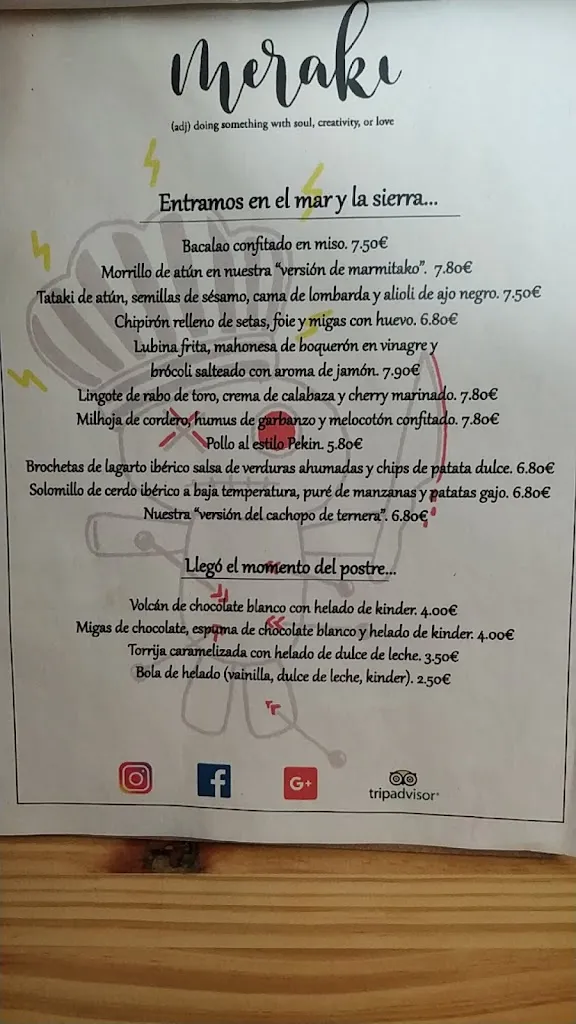 meraki
(adj) doing something with soul, creativity, or love
Entramos en el mar y la sierra...
Bacalao confitado en miso. 7.50€
Morrillo de atún en nuestra “versión de marmitako”. 7.80€
Tataki de atún, semillas de sésamo, cama de lombarda y alioli de ajo negro. 7.50€
Chipirón relleno de setas, foie y migas con huevo. 6.80€
Lubina frita, mahonesa de boquerón en vinagre y
brócoli salteado con aroma de jamón. 7.90€
Lingote de rabo de toro, crema de calabaza y cherry marinado. 7.80€
Milhoja de cordero, humus de garbanzo y melocotón confitado. 7.80€
Pollo al estilo Pekin. 5.80€
Brochetas de lagarto ibérico salsa de verduras ahumadas y chips de patata dulce. 6.80€
Solomillo de cerdo ibérico a baja temperatura, puré de manzanas y patatas gajo. 6.80€
Nuestra “versión del cachopo de ternera”. 6.80€
Llegó el momento del postre...
Volcán de chocolate blanco con helado de kinder. 4.00€
Migas de chocolate, espuma de chocolate blanco y helado de kinder. 4.00€
Torrija caramelizada con helado de dulce de leche. 3.50€
Bola de helado (vainilla, dulce de leche, kinder). 2.50€
f G+ tripadvisor®